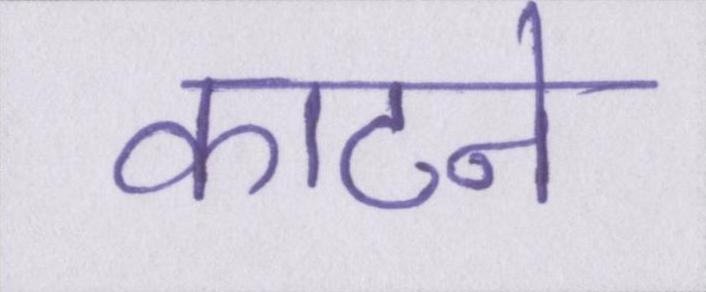 काटने